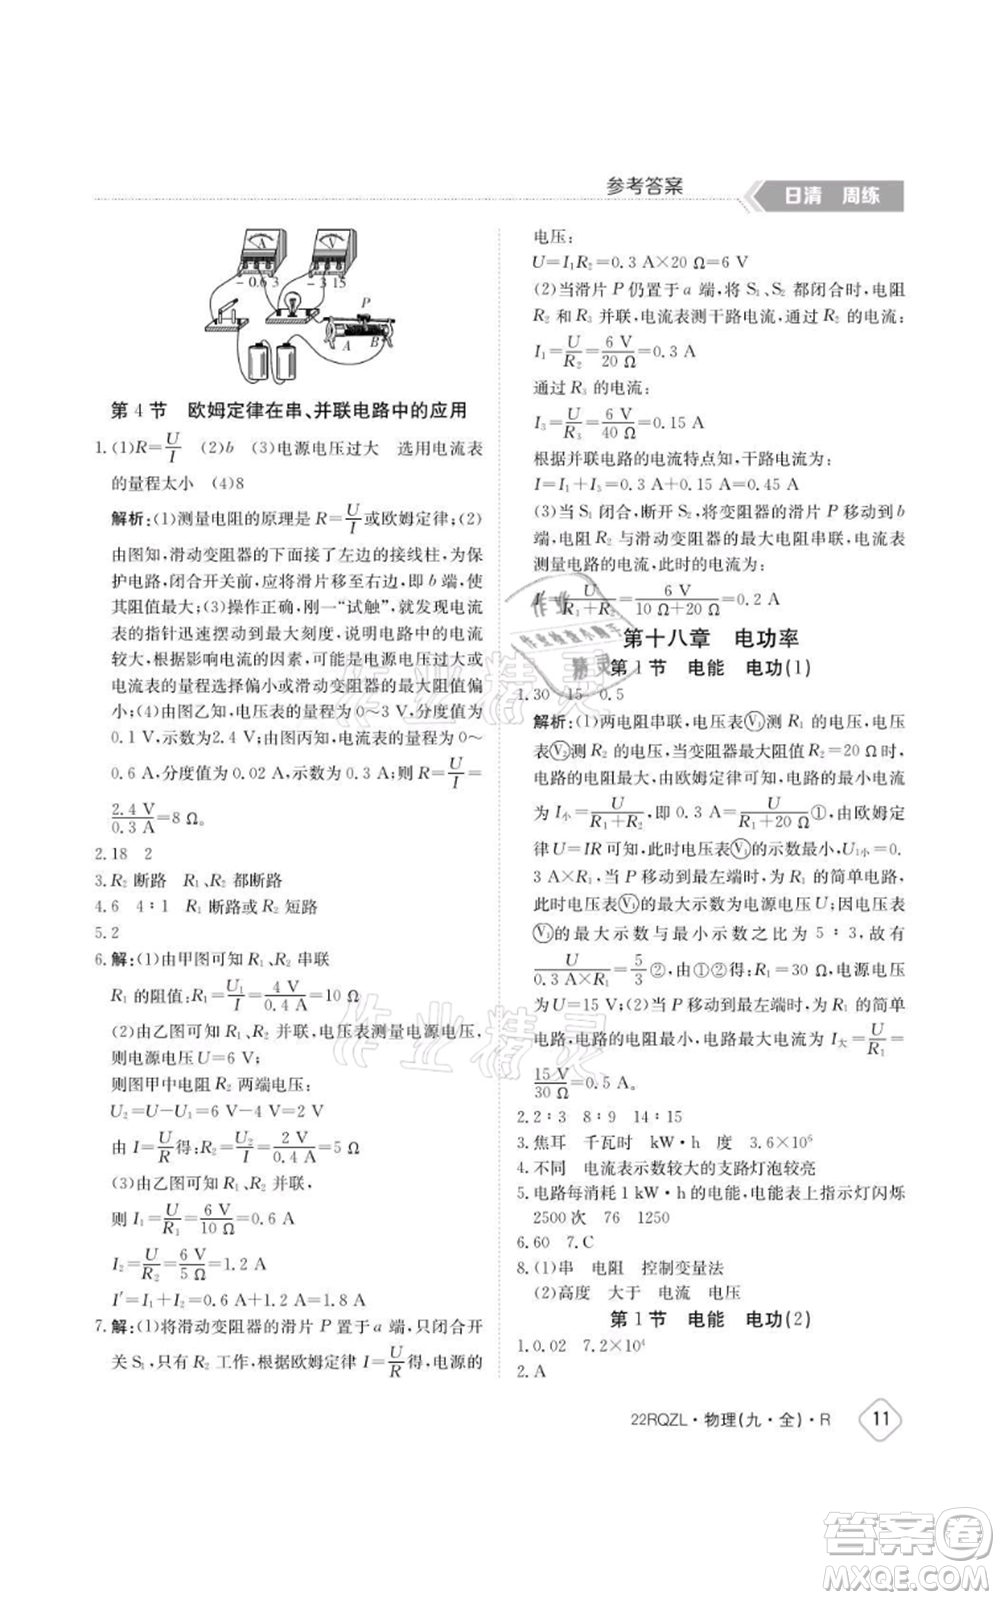 参考答案
日清 周练
A
V
- 0.6 3
- 3 15
P
A B
第 4 节 欧姆定律在串、并联电路中的应用
1. (1)R=U/I (2)b (3)电源电压过大 选用电流表
的量程太小 (4)8
解析:(1)测量电阻的原理是 R=U/I或欧姆定律;(2)
由图知,滑动变阻器的下面接了左边的接线柱,为保
护电路,闭合开关前,应将滑片移至右边,即 b 端,使
其阻值最大;(3)操作正确,刚一“试触”,就发现电流
表的指针迅速摆动到最大值,说明电路中的电流
较大,根据影响电流的因素,可能是电源电压过大或电流
表的量程选择偏小或滑动变阻器的最大阻值偏
小;(4)由图乙知,电压表的量程为 0～3 V,分度值为
0.1 V,示数为2.4 V;由图丙知,电流表的量程为 0～
0.6 A,分度值为 0.02 V,示数为0.3 A;则 R=U/I=
2.4 V/0.3 A=8 Ω。
2. 18 2
3. R₂ 断路 R₁、R₂ 都断路
4. 6 4∶1 R₁ 断路或 R₂ 短路
5. 2
6. 解:(1)由甲图可知 R₁、R₂ 串联
R₁ 的阻值:R₁=U₁/I=4 V/0.4 A=10 Ω
(2)由乙图可知 R₁、R₂ 并联,电压表测量电源电压,
则电源电压 U=6 V;
则图甲中电阻 R₂ 两端电压:
U₂=U-U₁=6 V-4 V=2 V
由 I=U/R得:R₂=U₂/I=2 V/0.4 A=5 Ω
(3)由乙图可知 R₁、R₂ 并联,
则 I₁=U/R₁=6 V/10 Ω=0.6 A
I₂=U/R₂=6 V/5 Ω=1.2 A
I′=I₁+I₂=0.6 A+1.2 A=1.8 A
7. 解:(1)将滑动变阻器的滑片 P 置于 a 端,只闭合开
关 S₁,只有 R₂ 工作,根据欧姆定律 I=U/R得,电源的
电压:
U=I₁R₂=0.3 A×20 Ω=6 V
(2)当滑片 P 仍置于 a 端,将 S₁、S₂ 都闭合时,电阻
R₂ 和 R₃ 并联,电流表测干路电流,通过 R₂ 的电流:
I₁=U/R₂=6 V/20 Ω=0.3 A
通过 R₃ 的电流:
I₃=U/R₃=6 V/40 Ω=0.15 A
根据并联电路的电流特点知,干路电流为:
I=I₁+I₃=0.3 A+0.15 A=0.45 A
(3)当 S₁ 闭合,断开 S₂,将变阻器的 P 移动到 b
端,电阻 R₂ 与滑动变阻器的最大电阻串联,电流表
测量电路的电流,此时的电流为:
I′=U/R₁+R₂=6 V/10 Ω+20 Ω=0.2 A
第十八章 电功率
第 1 节 电能 电功(1)
1. 30 15 0.5
解析:(1)两电阻串联,电压表Ⓥ₁测 R₁ 的电压,电压
表Ⓥ₂测 R₂ 的电压,当变阻器最大阻值 R₂=20 Ω时,
电路的电阻最大,由欧姆定律可知,电路的最小电流
为 I小=U/R₁+R₂,即 0.3 A=U/R₁+20 Ω①,由欧姆定
律 U=IR 可知,此时电压表Ⓥ₁的示数最小,U₁小=0.
3 A×R₁;当 P 移动到最左端时,为 R₁ 的简单电路,此
时Ⓥ₁的最大示数为电源电压 U;因电压表
Ⓥ₁的最大示数与最小示数之比为 5∶3,故有
U/0.3 A×R₁=5/3②,由①②得:R₁=30 Ω,电源电压
为 U=15 V;(2)当 P 移动到最左端时,为 R₁ 的简单
电路,电路的电阻最小,电路最大电流为:I大=U/R₁=
15 V/30 Ω=0.5 A。
2. 2∶3 8∶9 14∶15
3. 焦耳 千瓦时 kW·h 度 3.6×10⁶
4. 不同 电流表示数较大的支路灯泡较亮
5. 电路每消耗 1 kW·h 的电能,电能表上指示灯闪烁
2500 次 76 1250
6. 60 7. C
8. (1)串 电阻 控制变量法
(2)高度 大于 电流 电压
第 1 节 电能 电功(2)
1. 0.02 7.2×10⁴
2. A
22RQZL·物理(九·全)·R 11
作业精灵
作业精灵
作业
作业检查小助手
精灵
答案圈
MXQE.COM